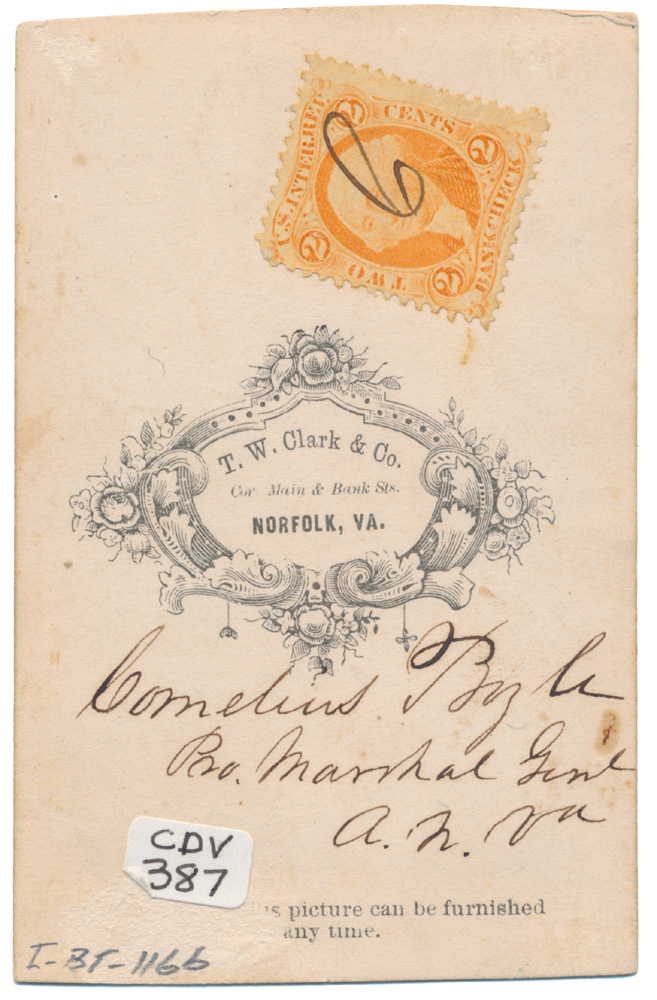 CENTS
U.S. INTER. REV.
BANK CHECK
TWO
2
2
2
2
T. W. Clark & Co.
Cor Main & Bank Sts.
NORFOLK, VA.
Cornelius Boyle
Pro. Marshal Genl
A. N. Va
CDV
387
is picture can be furnished
any time.
I-BT-1166